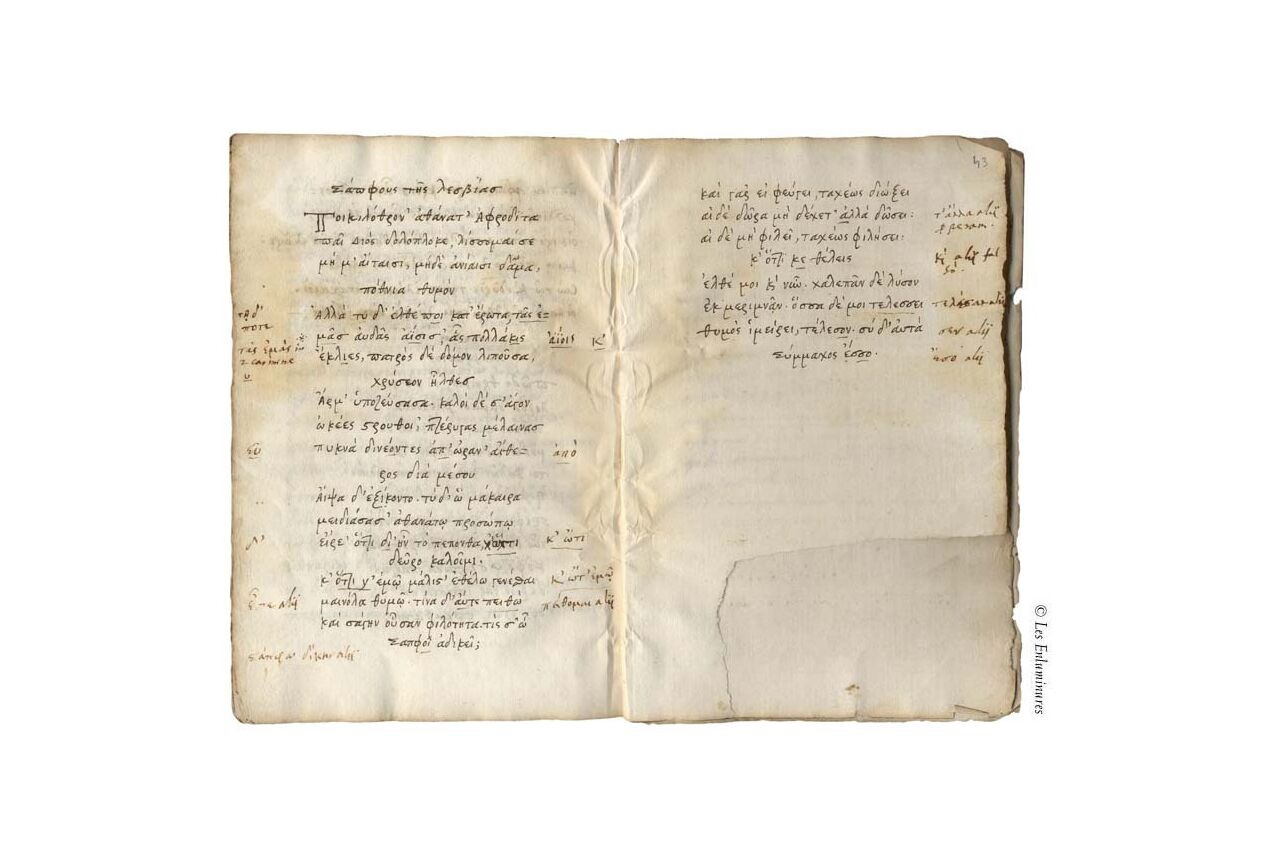 Σάπφους τῆς λεσβίας
Ποικιλόθρον' ἀθάνατ' Ἀφροδίτα
παῖ Διὸς δολόπλοκε, λίσσομαί σε
μή μ' ἄταισι, μηδὲ ἀνίαισι δάμα,
πότνια θυμόν
Ἀλλὰ τὺ δ' ἔλθε ποι κατ' ἔρωτα τᾶς ἐ-
μᾶς αὐδᾶς ἀΐοισ', ἇς πολλάκις
ἔκλυες, πατρὸς δὲ δόμον λιποῦσα,
χρύσεον ἦλθες
Ἅρμ' ὑποζεύσασα. καλοὶ δέ σ' ἆγον
ὠκέες στρουθοὶ, πτέρυγας μέλαινας
πυκνὰ δινέοντες ἀπ' ὠραν' αἰθέ-
ρος διὰ μέσου
Αἶψα δ' ἐξίκοντο. τὺ δ' ὦ μάκαιρα
μειδιάσασ' ἀθανάτῳ προσώπῳ
εἴρε' ὅττι δι' ἦν τὸ πέπονθα
δεῦρο καλοῖμι.
κ' ὅττι γ' ἐμῷ μάλιστ' ἐθέλω γενέσθαι
μαινόλᾳ θυμῷ. τίνα δ' αὖτε πειθὼ
καὶ σαγην οὖσαν φιλότητα. τίς σ' ὦ
Σαπφοῖ ἀδικεῖ;
τὺ δ'
ποτε
τᾶς ἐμᾶς
2 carmine
υ
δ'
alij
alij
ἀΐοις κ'
ἀπὸ
κ' ὤτι
κ' ὤτ' ἐμῷ
alij
43
καὶ γὰρ εἰ φεύγει, ταχέως διώξει
αἰ δὲ δῶρα μὴ δέχετ' ἀλλὰ δώσει:
αἰ δὲ μὴ φιλεῖ, ταχέως φιλήσει.
κ' ὅττι κε θέλεις
ἐλθέ μοι κ' νῦν. χαλεπᾶν δὲ λῦσον
ἐκ μεριμνᾶν. ὅσσα δέ μοι τελέσσει
θυμὸς ἱμείρει, τέλεσον. σὺ δ' αὐτὰ
σύμμαχος ἔσσο.
τ' ἄλλα alij
κ' alij
alij
alij
ἔσο alij
© Les Enluminures